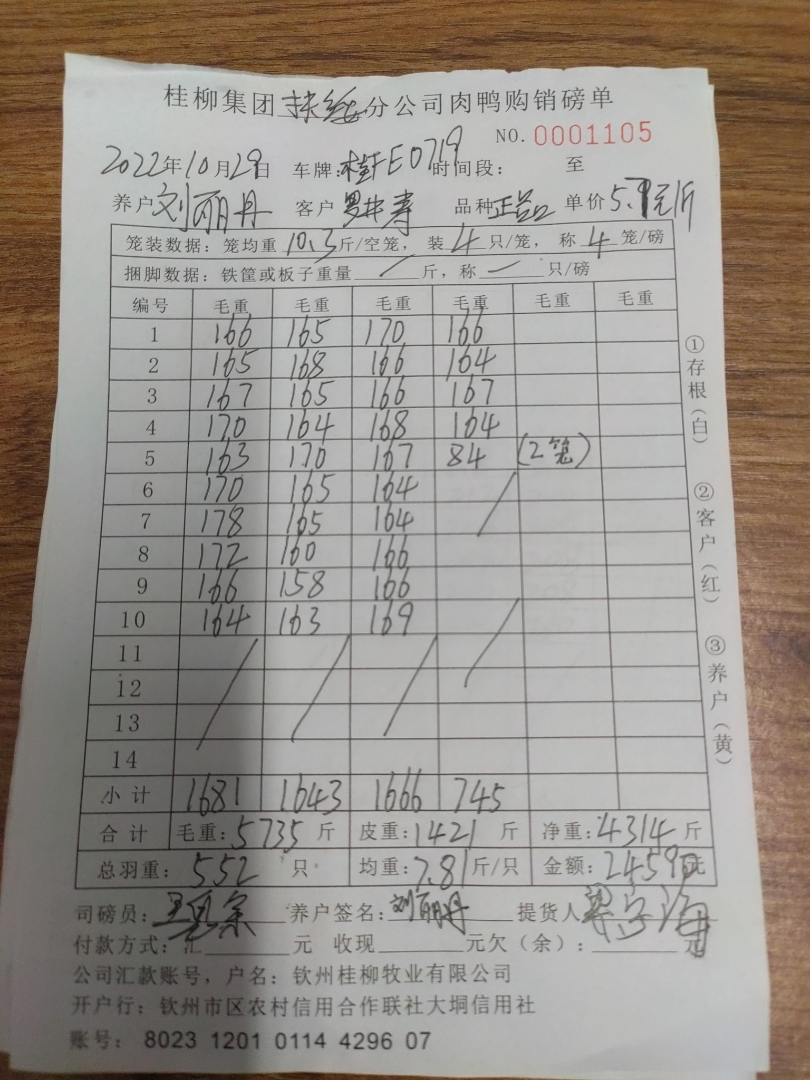 桂柳集团扶绥分公司肉鸭购销磅单
NO. 0001105
2022年10月29日 车牌:桂FE0719 时间段: 至
养户 刘丽丹 客户 品种 正品 单价5.7元/斤
笼装数据: 笼均重10.3斤/空笼, 装4只/笼, 称4笼/磅
捆脚数据: 铁筐或板子重量 / 斤, 称 一 只/磅
编号 毛重 毛重 毛重 毛重 毛重 毛重
1 166 165 170 166
2 165 168 166 164
3 167 165 166 167
4 170 164 168 164
5 163 170 167 84 (2笼)
6 170 165 164
7 178 165 164
8 172 160 166
9 166 158 166
10 164 163 169
11
12
13
14
小计 1681 1643 1666 745
合计 毛重:5735斤 皮重:1421斤 净重:4314斤
总羽重: 552 只 均重:7.81斤/只 金额:24590元
司磅员: 养户签名:刘丽丹 提货人
付款方式:汇 元 收现 元欠(余): 元
公司汇款账号, 户名: 钦州桂柳牧业有限公司
开户行: 钦州市区农村信用合作联社大垌信用社
账号: 8023 1201 0114 4296 07
①存根(白)
②客户(红)
③养户(黄)